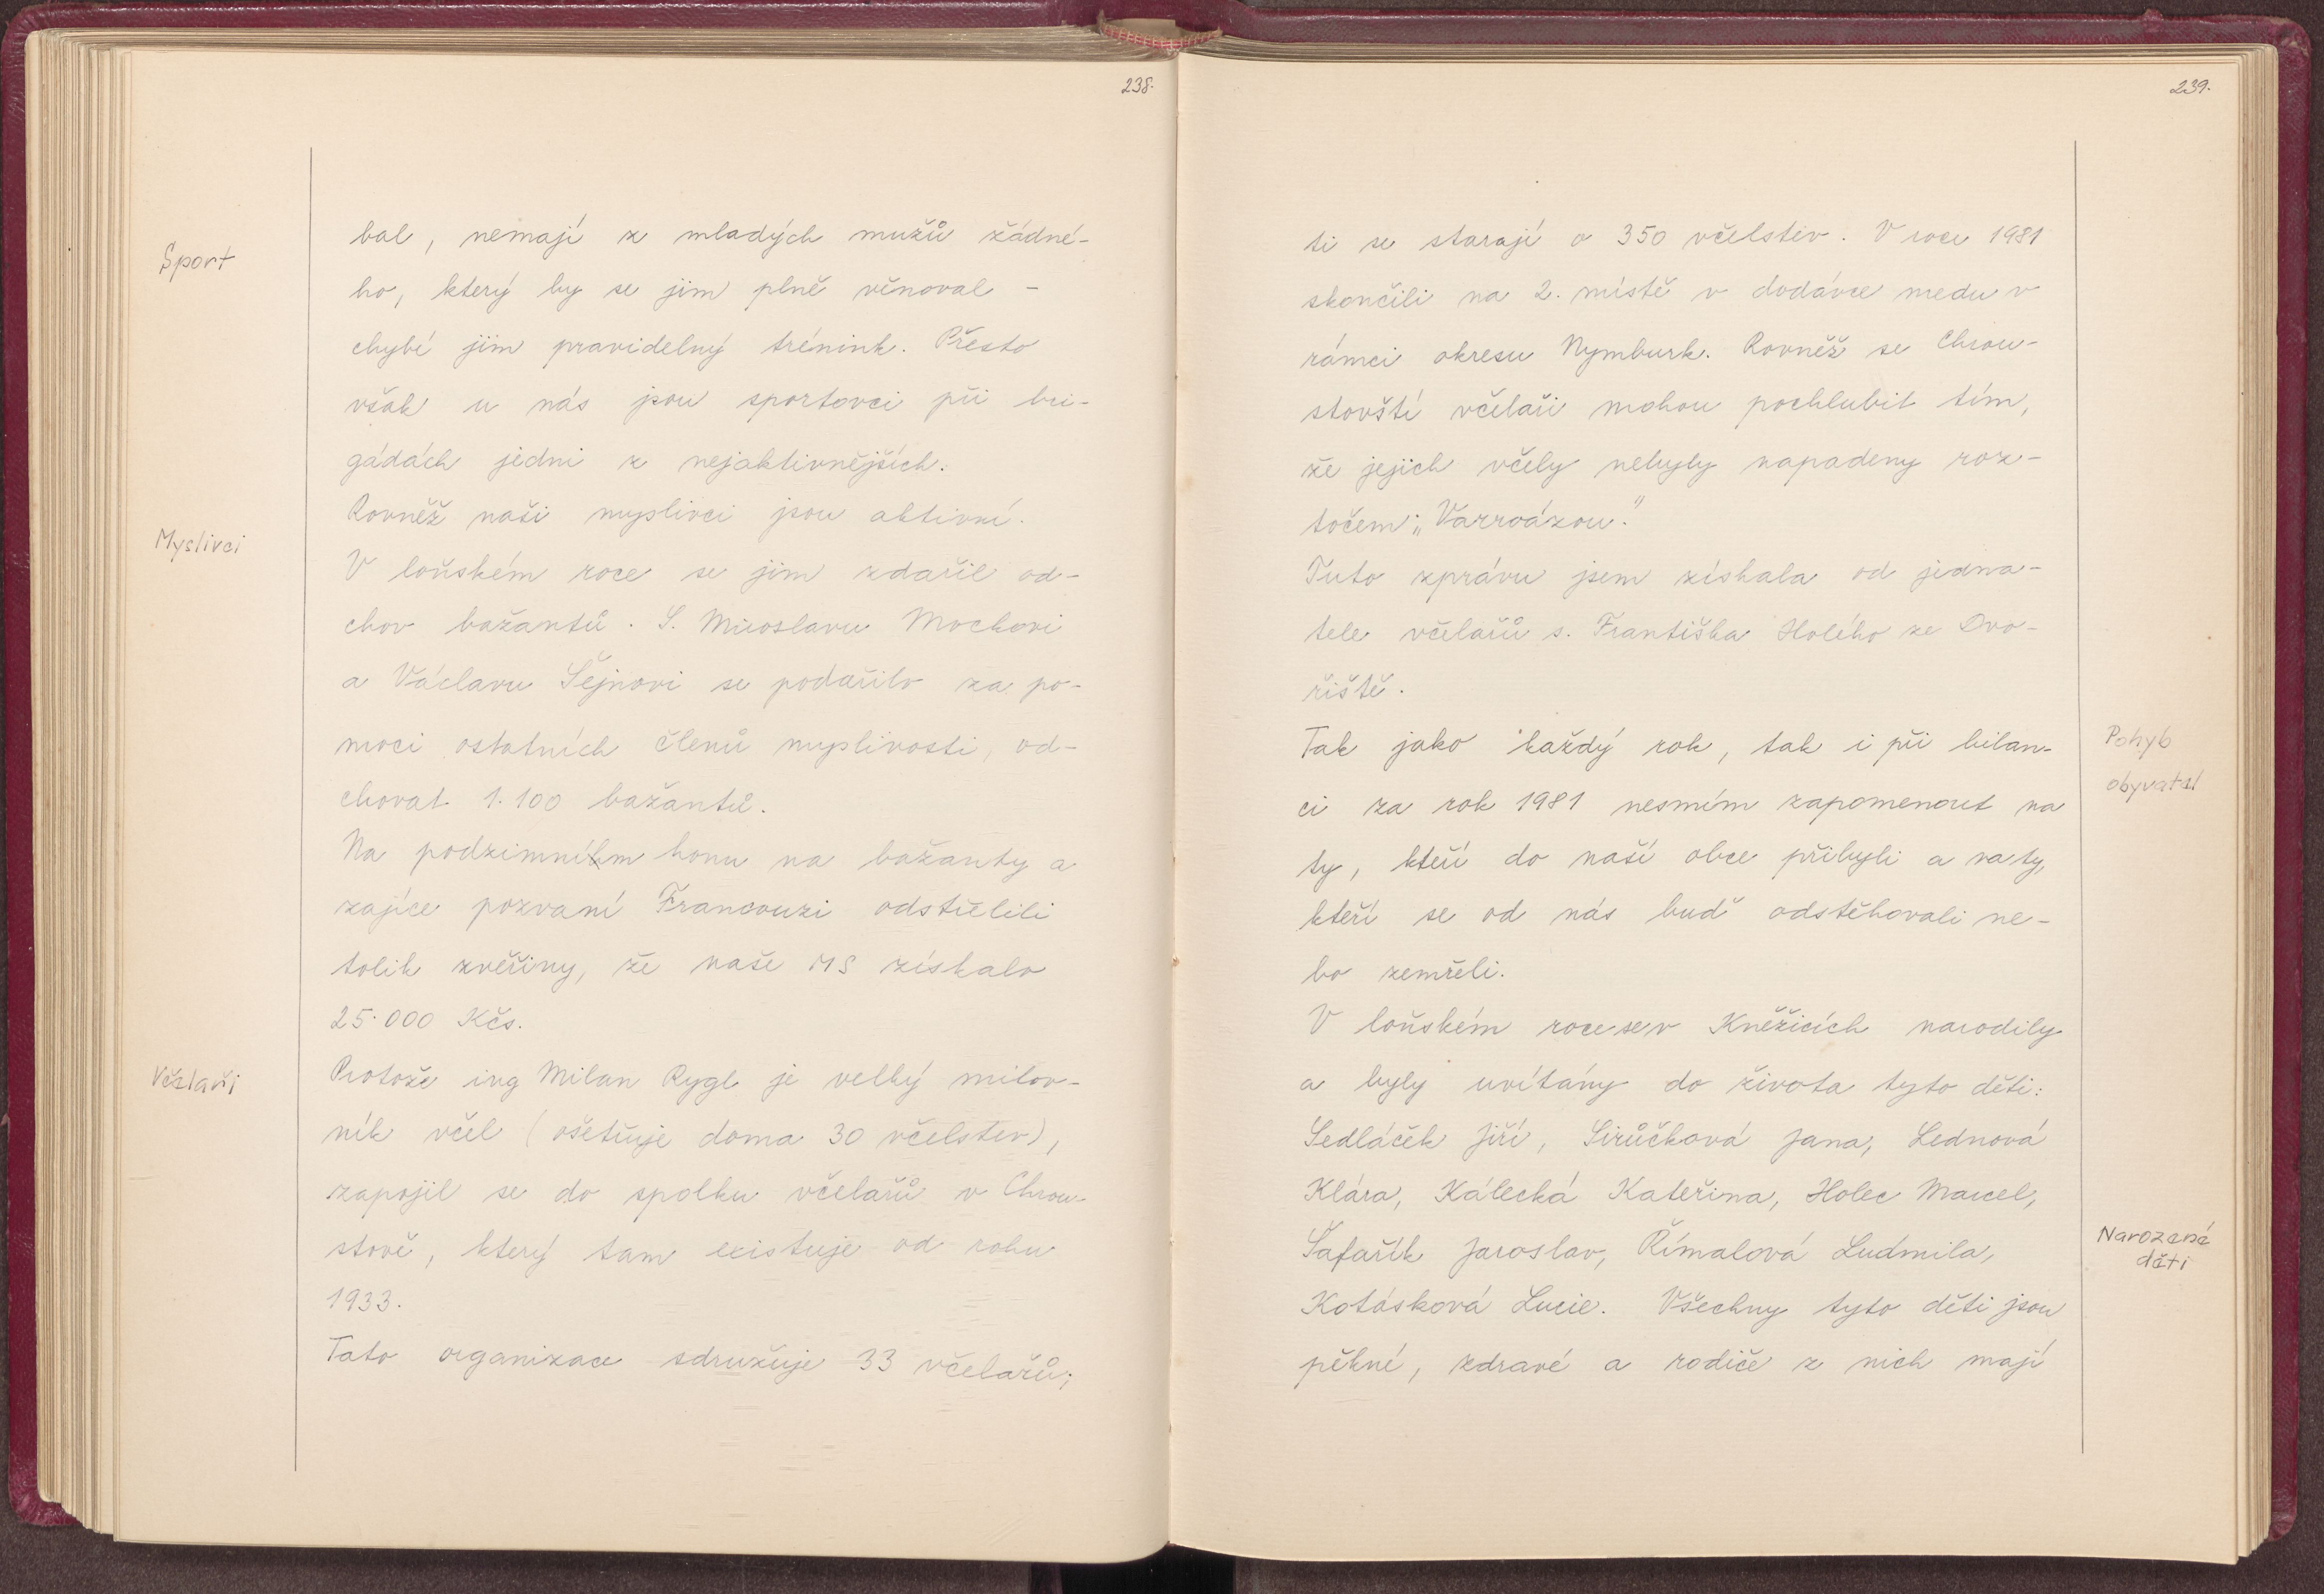 238.
Sport
bal, nemají z mladých mužů žádné-
ho, který by se jim plně věnoval -
chybí jim pravidelný trénink. Přesto
však u nás jsou sportovci při bri-
gádách jedni z nejaktivnějších.
Myslivci
Rovněž naši myslivci jsou aktivní.
V loňském roce se jim zdařil od-
chov bažantů. S. Miroslavu Mockovi
a Václavu Šejnovi se podařilo za po-
moci ostatních členů myslivosti, od-
chovat 1.100 bažantů.
Na podzimním honu na bažanty a
zajíce pozvaní Francouzi odstřelili
tolik zvěřiny, že naše MS získalo
25.000 Kčs.
Včelaři
Protože ing Milan Rygl je velký milov-
ník včel (ošetřuje doma 30 včelstev),
zapojil se do spolku včelařů v Chrou-
stově, který tam existuje od roku
1933.
Tato organizace sdružuje 33 včelařů;
239.
ti se starají o 350 včelstev. V roce 1981
skončili na 2. místě v dodávce medu v
rámci okresu Nymburk. Rovněž se Chrou-
stovští včelaři mohou pochlubit tím,
že jejich včely nebyly napadeny roz-
točem: „Varroázou."
Tuto zprávu jsem získala od jedna-
tele včelařů s. Františka Holého ze Dvo-
řiště.
Pohyb
obyvatel
Tak jako každý rok, tak i při bilan-
ci za rok 1981 nesmím zapomenout na
ty, kteří do naší obce přibyli a na ty,
kteří se od nás buď odstěhovali ne-
bo zemřeli.
V loňském roce se v Kněžicích narodily
a byly uvítány do života tyto děti:
Sedláček Jiří, Sirůčková Jana, Lednová
Klára, Kálecká Kateřina, Holec Marcel,
Narozené
děti
Šafařík Jaroslav, Římalová Ludmila,
Kotásková Lucie. Všechny tyto děti jsou
pěkné, zdravé a rodiče z nich mají